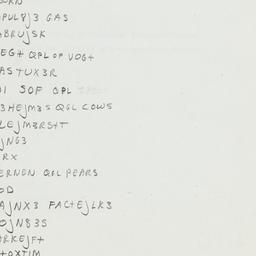 ORN
PUL8J3 GAS
ABRUJSK
EGT QPL OP VOGT
ASTUX3R
DI SOF QPL
3HEJM3S QGL COWS
LEJM3RSTT
JNG3
RX
ERNEN QGL PEARS
OD
AJNX3 FACTEJLK3
OJN83S
ARKEJFT
TOXTIM